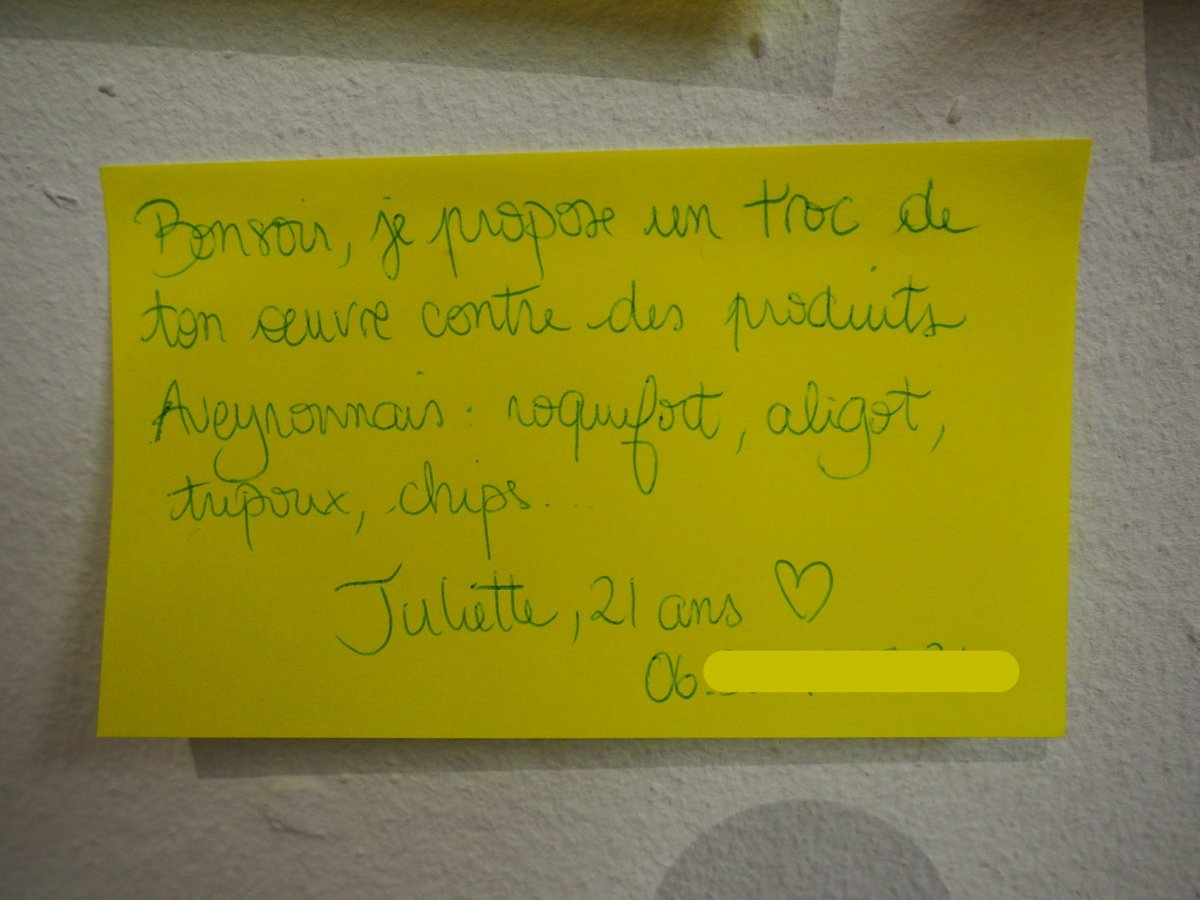 Bonsoir, je propose un troc de
ton œuvre contre des produits
Aveyronnais : roquefort, aligot,
tripoux, chips...
Juliette, 21 ans ♡
06